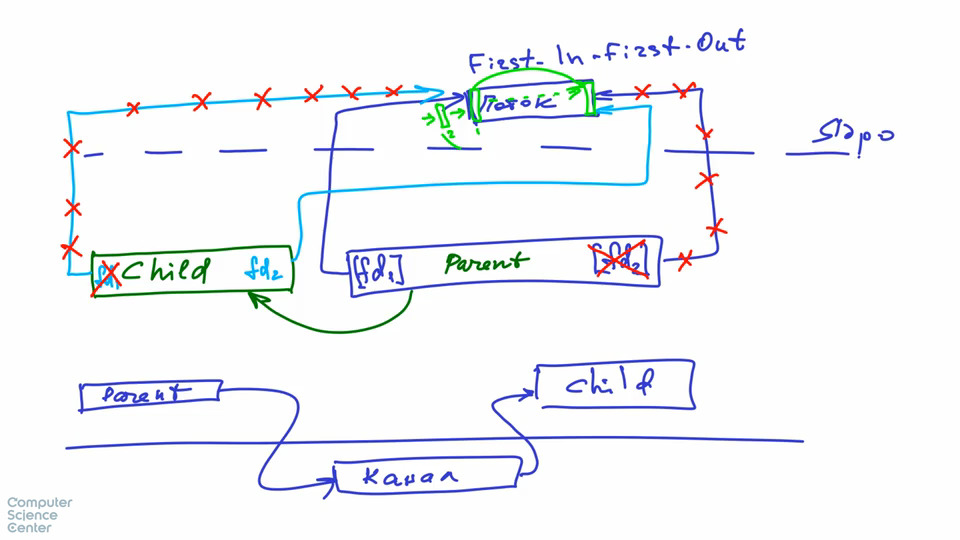 First-In-First-Out
Поток
1
2
Ядро
fd1
Child
fd2
[fd1]
Parent
[fd2]
Parent
Child
Канал
Computer
Science
Center